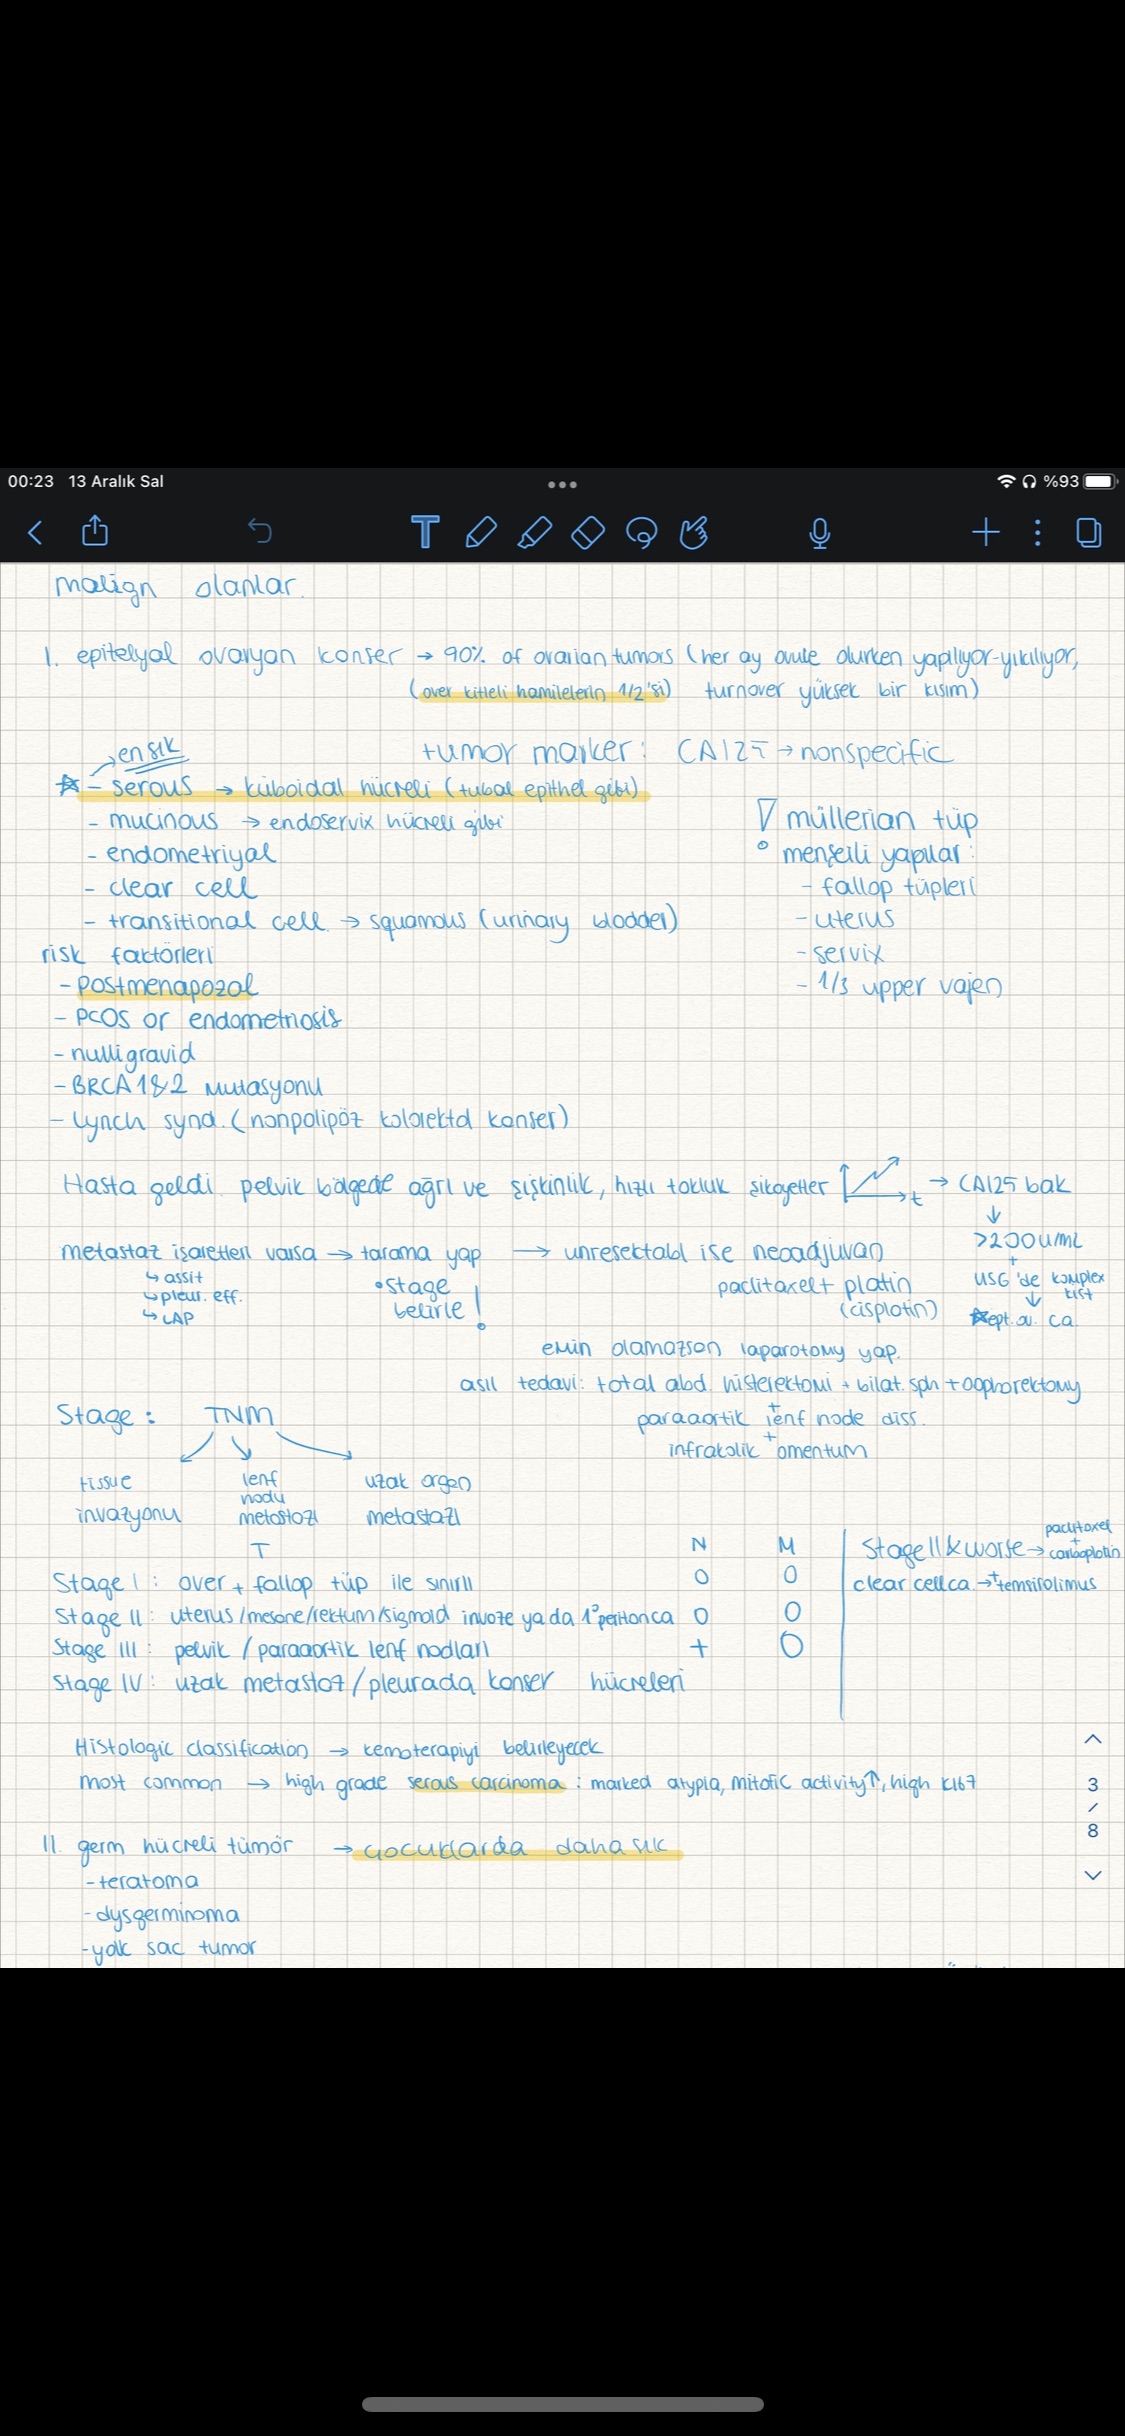 00:23 13 Aralık Sal %93
malign olanlar.
1. epitelyal ovaryan kanser → 90% of ovarian tumors (her ay ovule olurken yapılıyor-yıkılıyor,
(over kitleli hamilelerin 1/2'si) turnover yüksek bir kısım)
en sık
tumor marker: CA125 → nonspecific
- serous → küboidal hücreli (tubal epithel gibi)
- mucinous → endoservix hücreli gibi
- endometriyal
- clear cell
- transitional cell → squamous (urinary bladder)
! müllerian tüp
menşeili yapılar:
- fallop tüpleri
- uterus
- servix
- 1/3 upper vajen
risk faktörleri
- postmenapozal
- PCOS or endometriosis
- nulligravid
- BRCA 1&2 mutasyonu
- Lynch synd. (nonpolipöz kolorektal kanser)
Hasta geldi pelvik bölgede ağrı ve şişkinlik, hızlı tokluk şikayetler t → CA125 bak
↓
>200U/mL
+
USG'de komplex kist
↓
ept. ov. ca.
metastaz işaretleri varsa → tarama yap → unresektabl ise neoadjuvan
↳ assit
↳ pleur. eff.
↳ LAP
• stage
belirle!
paclitaxel + platin
(cisplatin)
emin olamazsan laparotomy yap.
asıl tedavi: total abd. histerektomi + bilat. salp + oophorektomy
+
paraaortik lenf node diss.
+
infrakolik omentum
Stage: TNM
tissue invazyonu
lenf nodu metastazı
uzak organ metastazı
T N M
Stage I: over + fallop tüp ile sınırlı 0 0
Stage II: uterus/mesane/rektum/sigmoid invaze ya da 1° periton ca 0 0
Stage III: pelvik / paraaortik lenf nodları + 0
Stage IV: uzak metastaz/pleurada kanser hücreleri
Stage II & worse → paclitaxel + carboplatin
clear cell ca. → + temsirolimus
Histologic classification → kemoterapiyi belirleyecek
most common → high grade serous carcinoma: marked atypia, mitotic activity↑, high Ki67
3
/
8
II. germ hücreli tümör → çocuklarda daha sık
- teratoma
- dysgerminoma
- yolk sac tumor